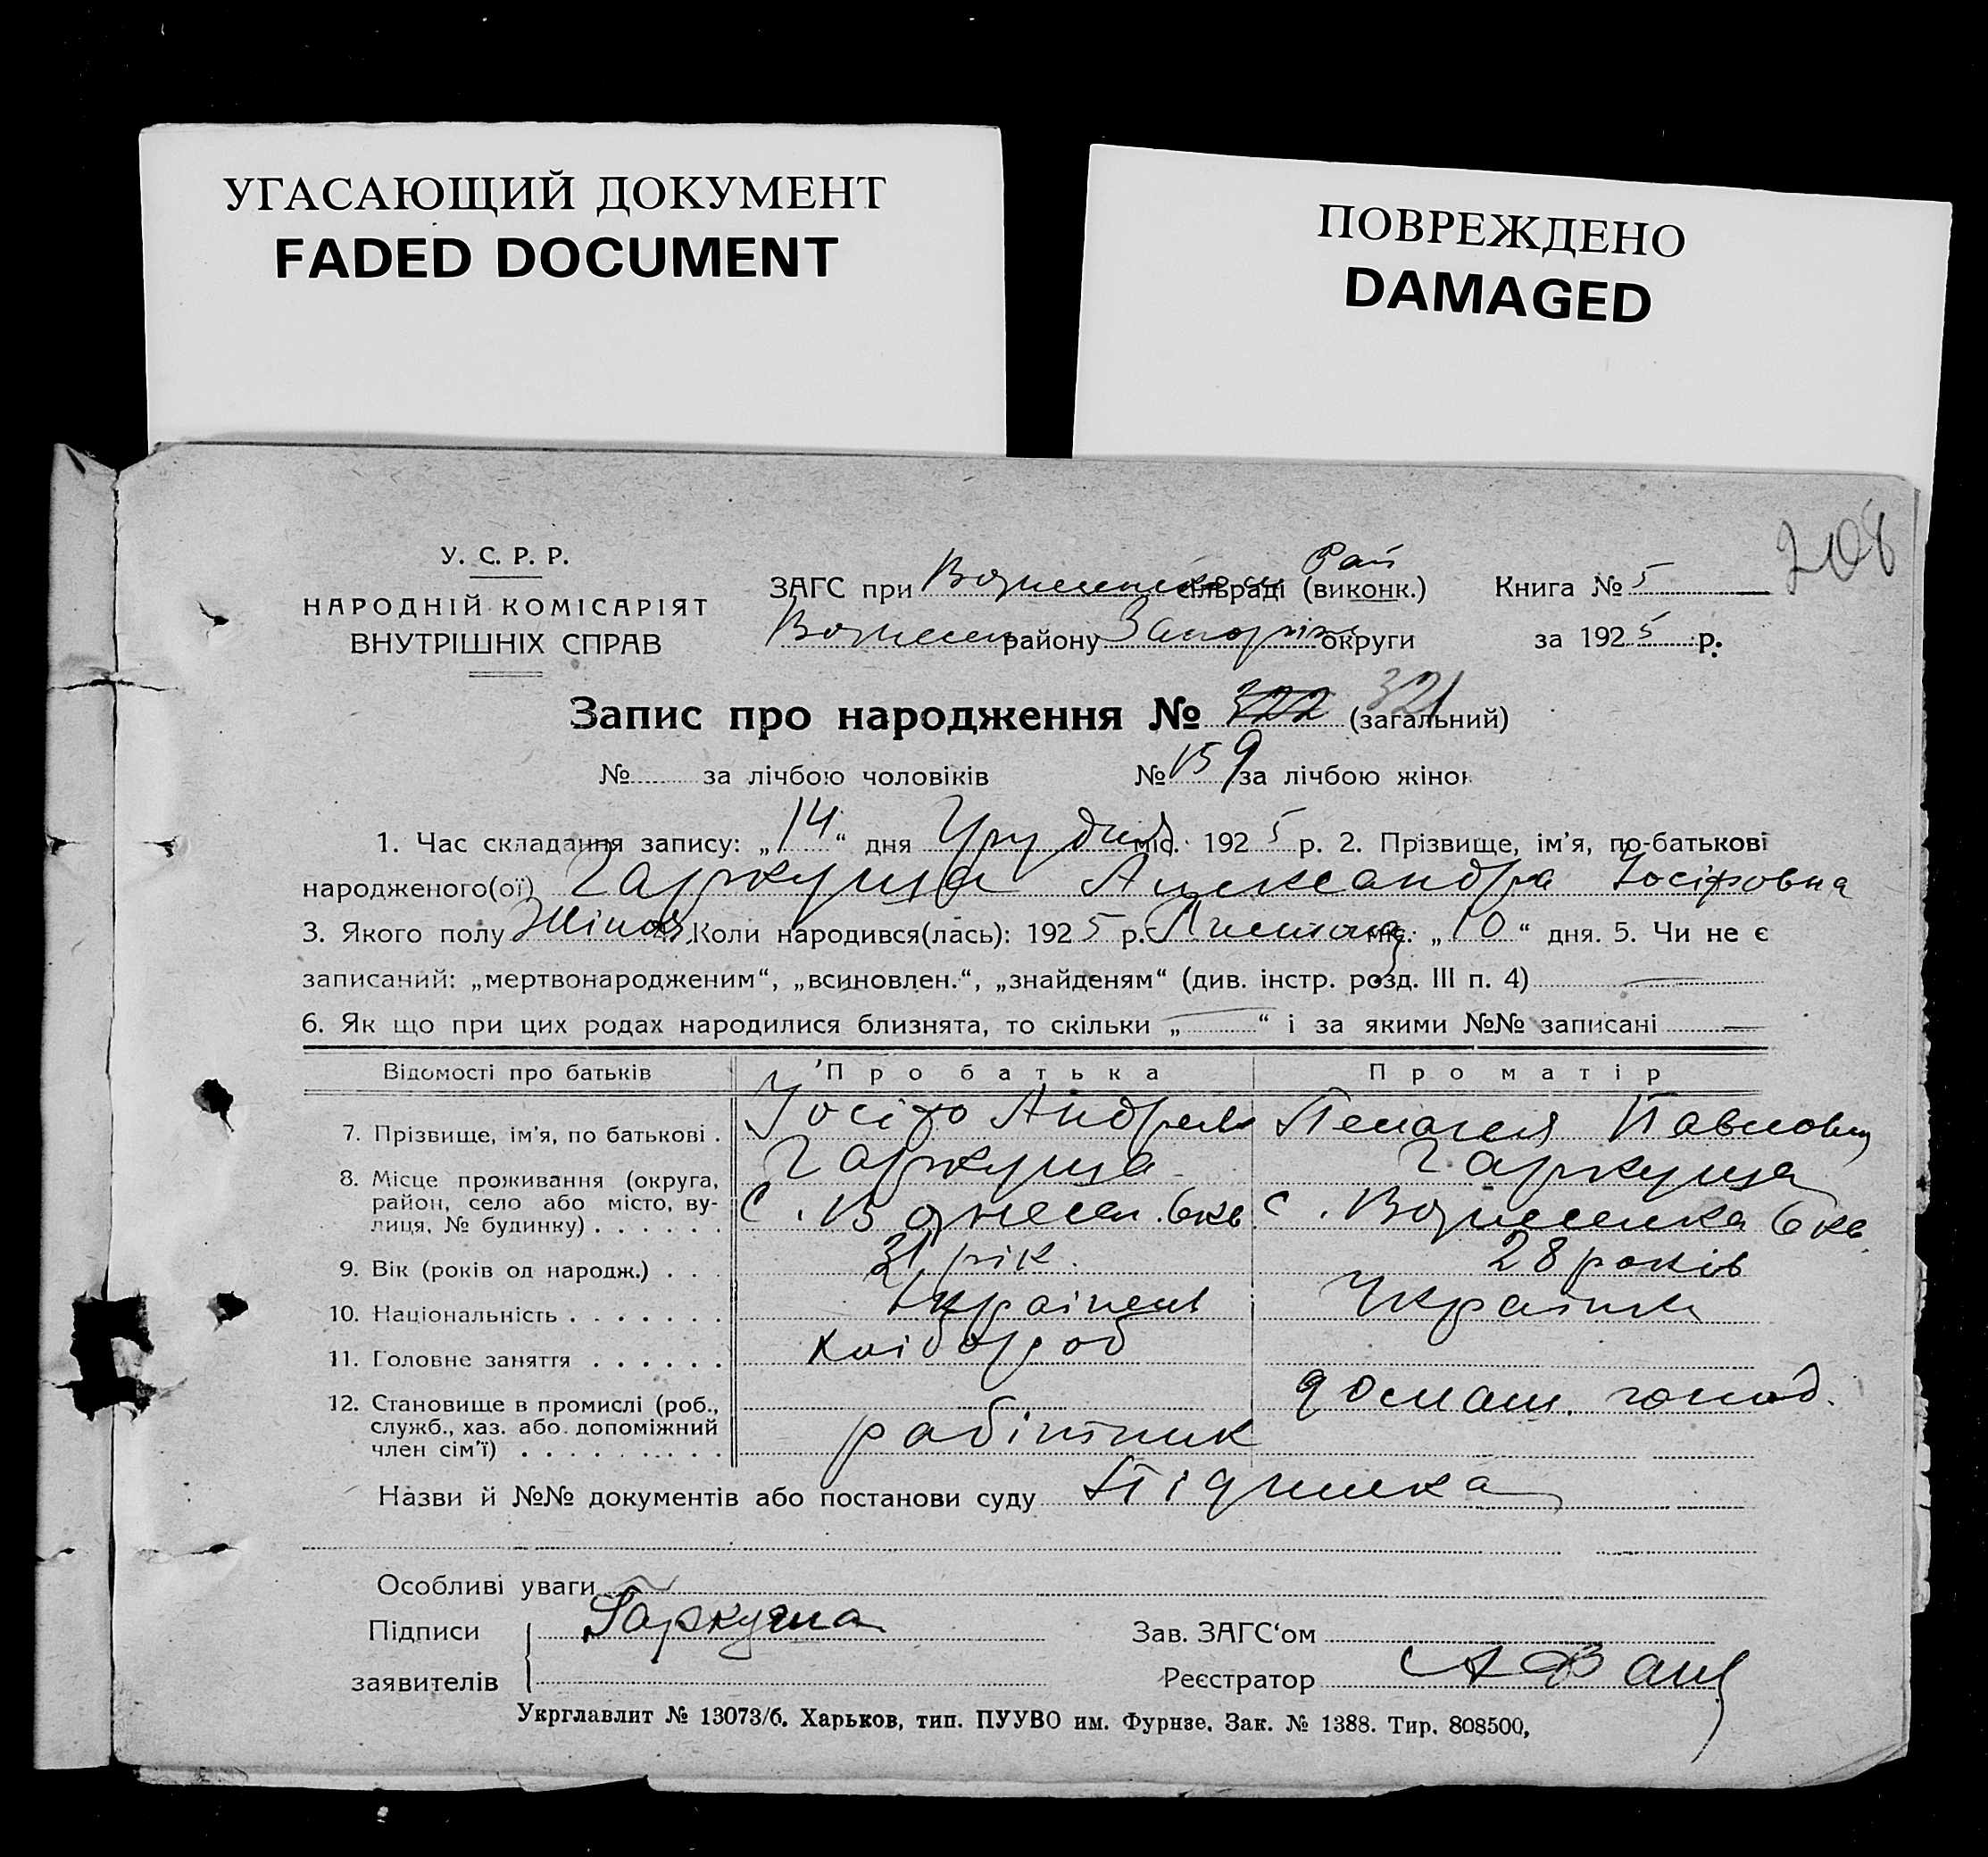 УГАСАЮЩИЙ ДОКУМЕНТ
FADED DOCUMENT
ПОВРЕЖДЕНО
DAMAGED
208
У. С. Р. Р.
НАРОДНІЙ КОМІСАРІЯТ
ВНУТРІШНІХ СПРАВ
Рай
ЗАГС при Вознесенськ сільраді (виконк.) Книга № 5
Вознесен району Запоріж округи за 1925 р.
Запис про народження № 322 321 (загальний)
№ за лічбою чоловіків № 159 за лічбою жінок
1. Час складання запису: „14“ дня Грудня міс. 1925 р. 2. Прізвище, ім’я, по-батькові
народженого(ої) Гаркуша Александра Йосіфовна
3. Якого полу Жіноч. 4. Коли народився(лась): 1925 р. Листопад міс. „10“ дня. 5. Чи не є
записаний: „мертвонародженим“, „всиновлен.“, „знайденям“ (див. інстр. розд. III п. 4)
6. Як що при цих родах народилися близнята, то скільки „—“ і за якими №№ записані —
Відомості про батьків Про батька Про матір
7. Прізвище, ім’я, по батькові . Йосіф Андреев Гаркуша Пелагея Павловн Гаркуша
8. Місце проживання (округа, район, село або місто, вулиця, № будинку) . . . . . . С. Вознесен. 6 кв. С. Вознесенка 6 кв.
9. Вік (років од народж.) . . . 31 рік. 28 років
10. Національність . . . . . . . Українець Українка
11. Головне заняття . . . . . . хлібороб
12. Становище в промислі (роб., служб., хаз. або допоміжний член сім’ї) . . . . . . . . . робітник домаш. господ.
Назви й №№ документів або постанови суду
Особливі уваги
Підписи Гаркуша Зав. ЗАГС‘ом
заявителів Реєстратор
Укрглавлит № 13073/б. Харьков, тип. ПУУВО им. Фурнзе. Зак. № 1388. Тир. 808500,